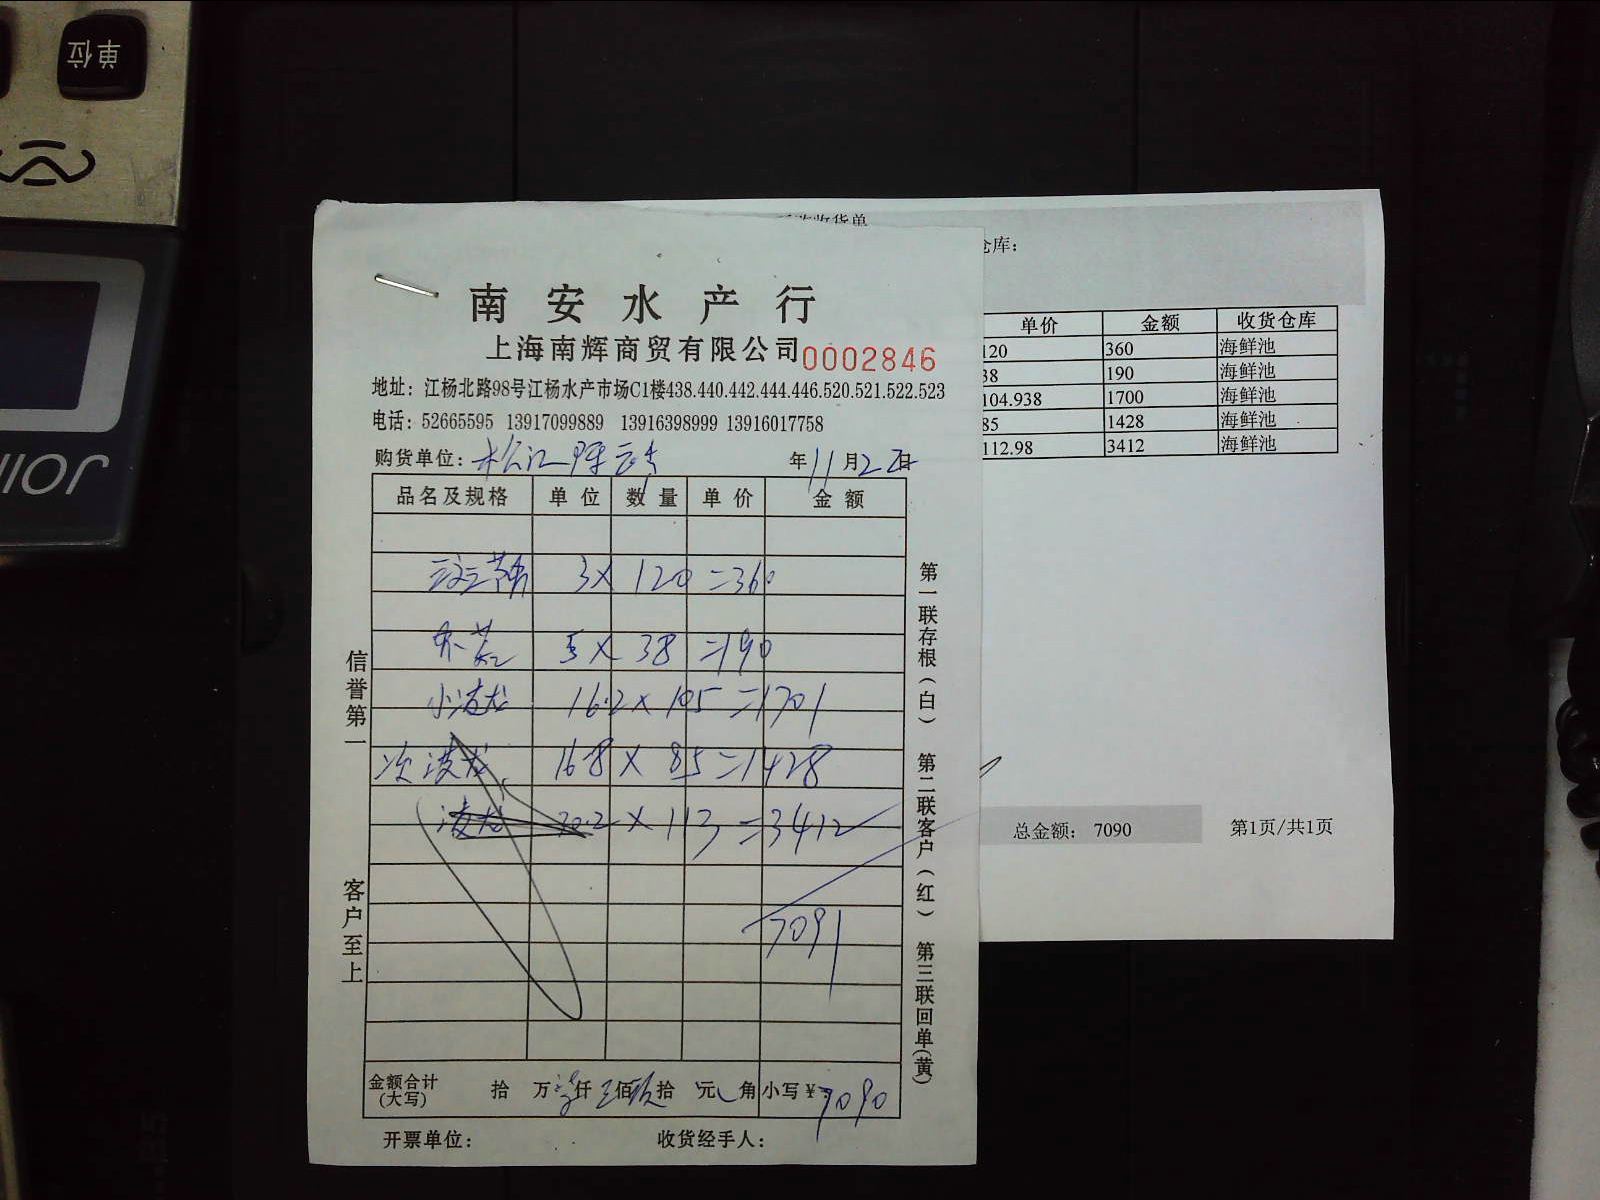 单位
JOIN
收货单
仓库：
单价 金额 收货仓库
120 360 海鲜池
38 190 海鲜池
104.938 1700 海鲜池
85 1428 海鲜池
112.98 3412 海鲜池
总金额： 7090 第1页/共1页
南安水产行
上海南辉商贸有限公司 0002846
地址：江杨北路98号江杨水产市场C1楼438.440.442.444.446.520.521.522.523
电话：52665595 13917099889 13916398999 13916017758
购货单位：松江 年11月22日
品名及规格 单位 数量 单价 金额
3×120=360
5×38=190
小波龙 16.2×105=1701
次波龙 16.8×85=1428
波龙 30.2×113=3412
7091
金额合计(大写) 拾 万 仟 佰 拾 元 角 小写￥7090
开票单位： 收货经手人：
信誉第一
客户至上
第一联存根(白) 第二联客户(红) 第三联回单(黄)